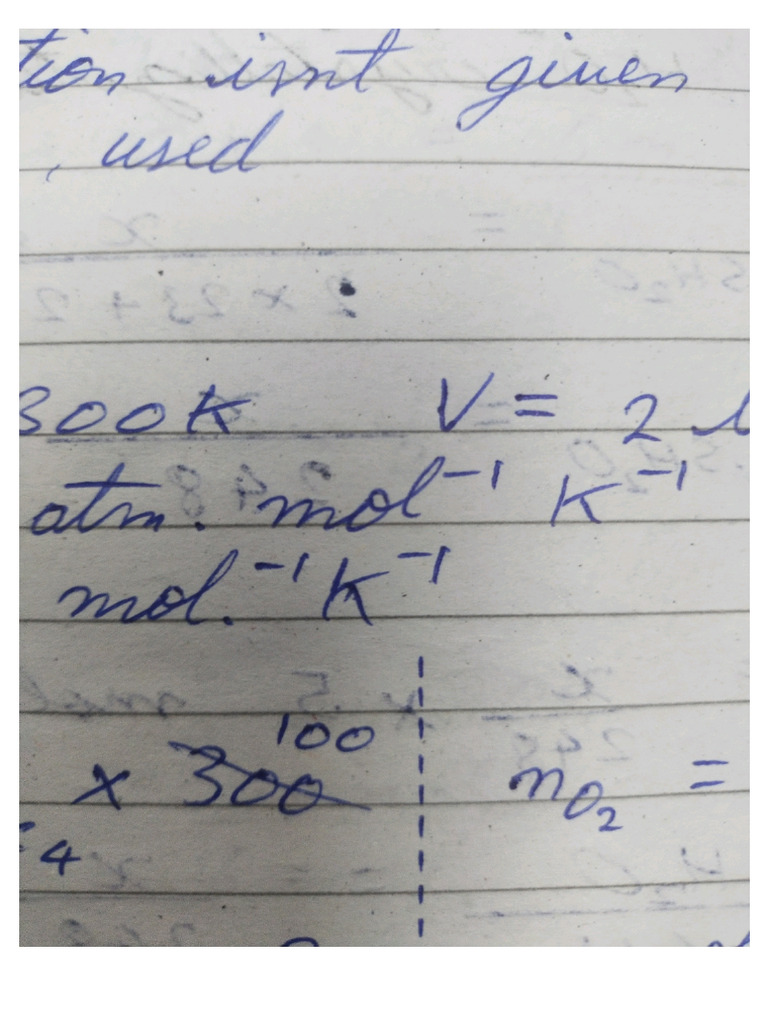 tion isnt given
, used
300K V = 2 l
atm. mol⁻¹ K⁻¹
mol.⁻¹ K⁻¹
100
× 300 nO₂ =
4